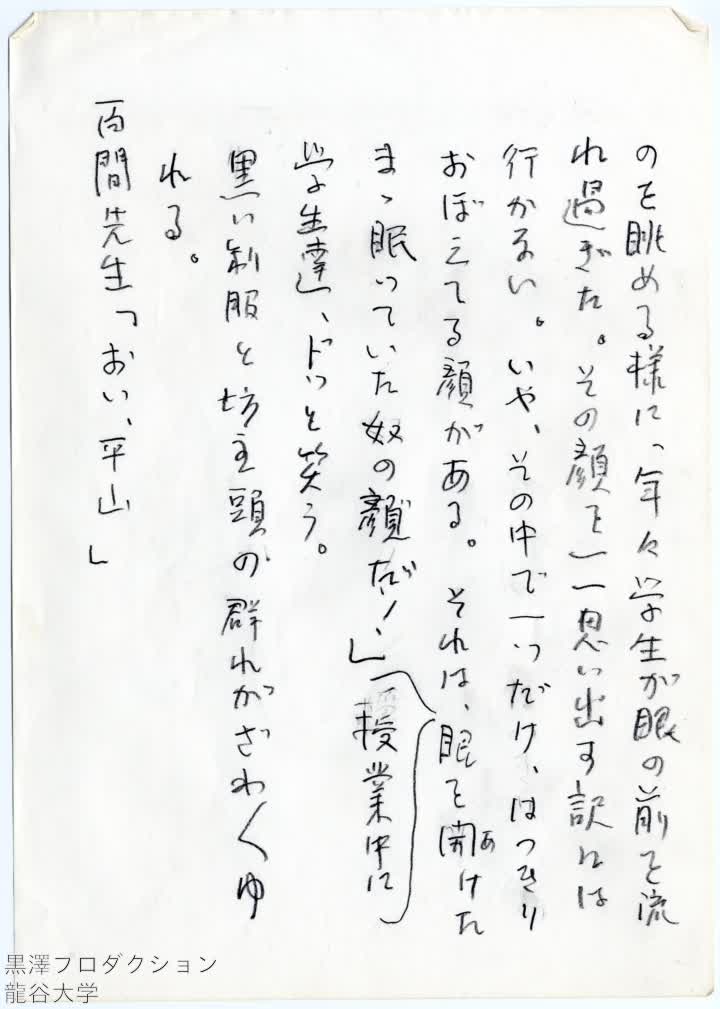 のを眺める様に、年々学生が眼の前を流
れ過ぎた。その顔を一一思い出す訳には
行かない。いや、その中で一つだけ、はっきり
おぼえてる顔がある。それは、眼を開けた
あ
まゝ眠っていた奴の顔だ！」
授業中に
学生達、ドッと笑う。
黒い制服と坊主頭の群れがざわ〱ゆ
れる。
百間先生「おい、平山」
黒澤プロダクション
龍谷大学